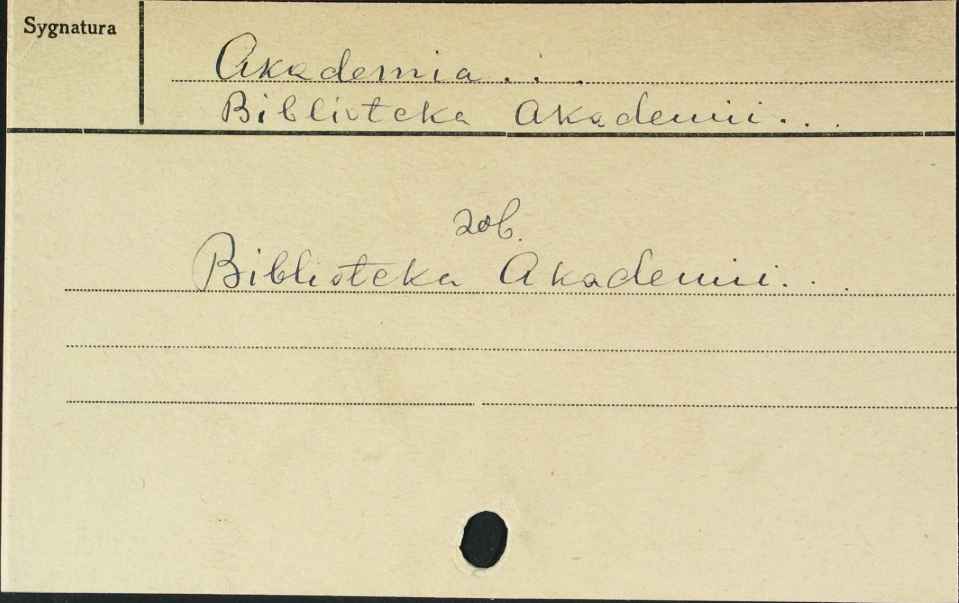 Sygnatura
Akademia...
Biblioteka Akademii...
zob.
Biblioteka Akademii...